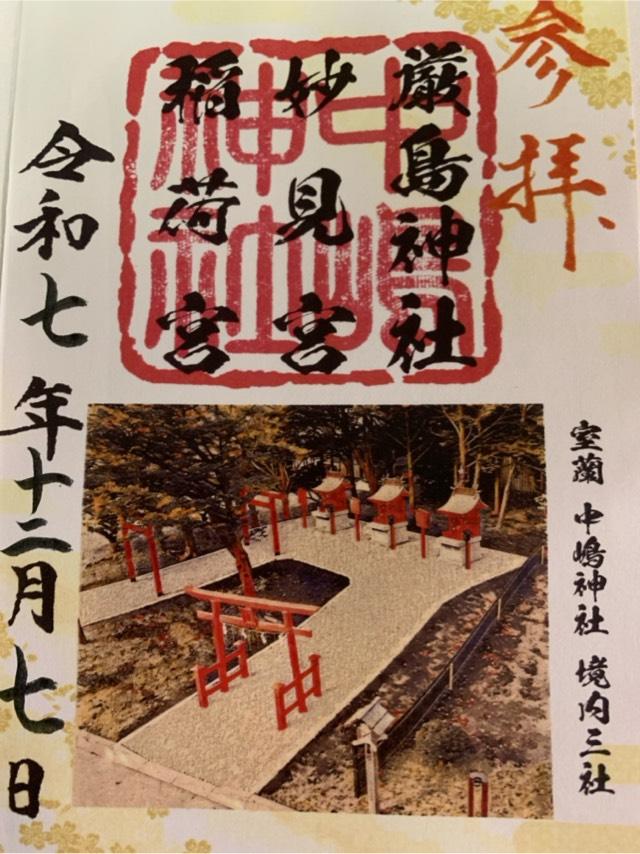 参拝
厳島神社
妙見宮
稲荷宮
中嶋神社
令和七年十二月七日
室蘭 中嶋神社 境内三社